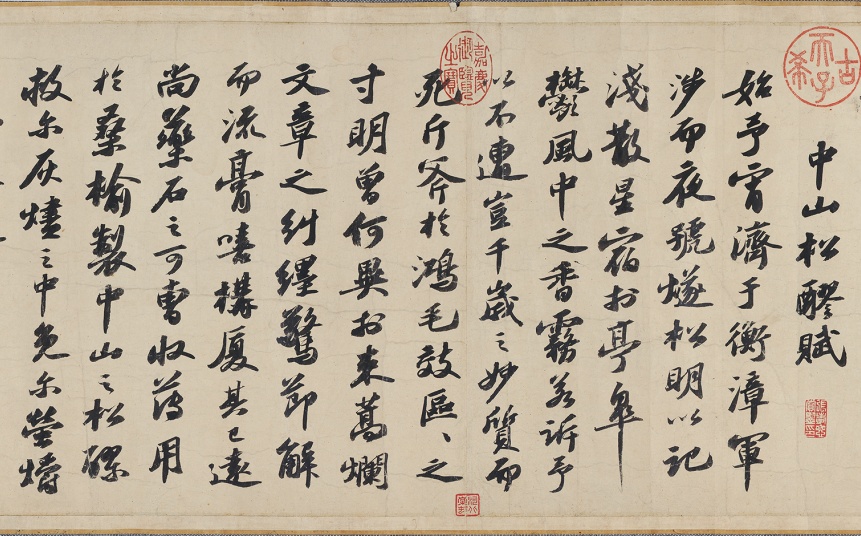 古希天子
中山松醪賦
始予宵濟于衡漳軍
涉而夜號燧松明以記
淺散星宿於亭皋
鬱風中之香霧若訴予
以不遭豈千歲之妙質而
死斤斧於鴻毛效區〻之
寸明曾何異於束蒿爛
文章之糾纆驚節解
而流膏嘻構廈其已遠
尚藥石之可曹收薄用
於桑榆製中山之松醪
救尔灰燼之中免尔螢爝
嘉慶御覽之寶